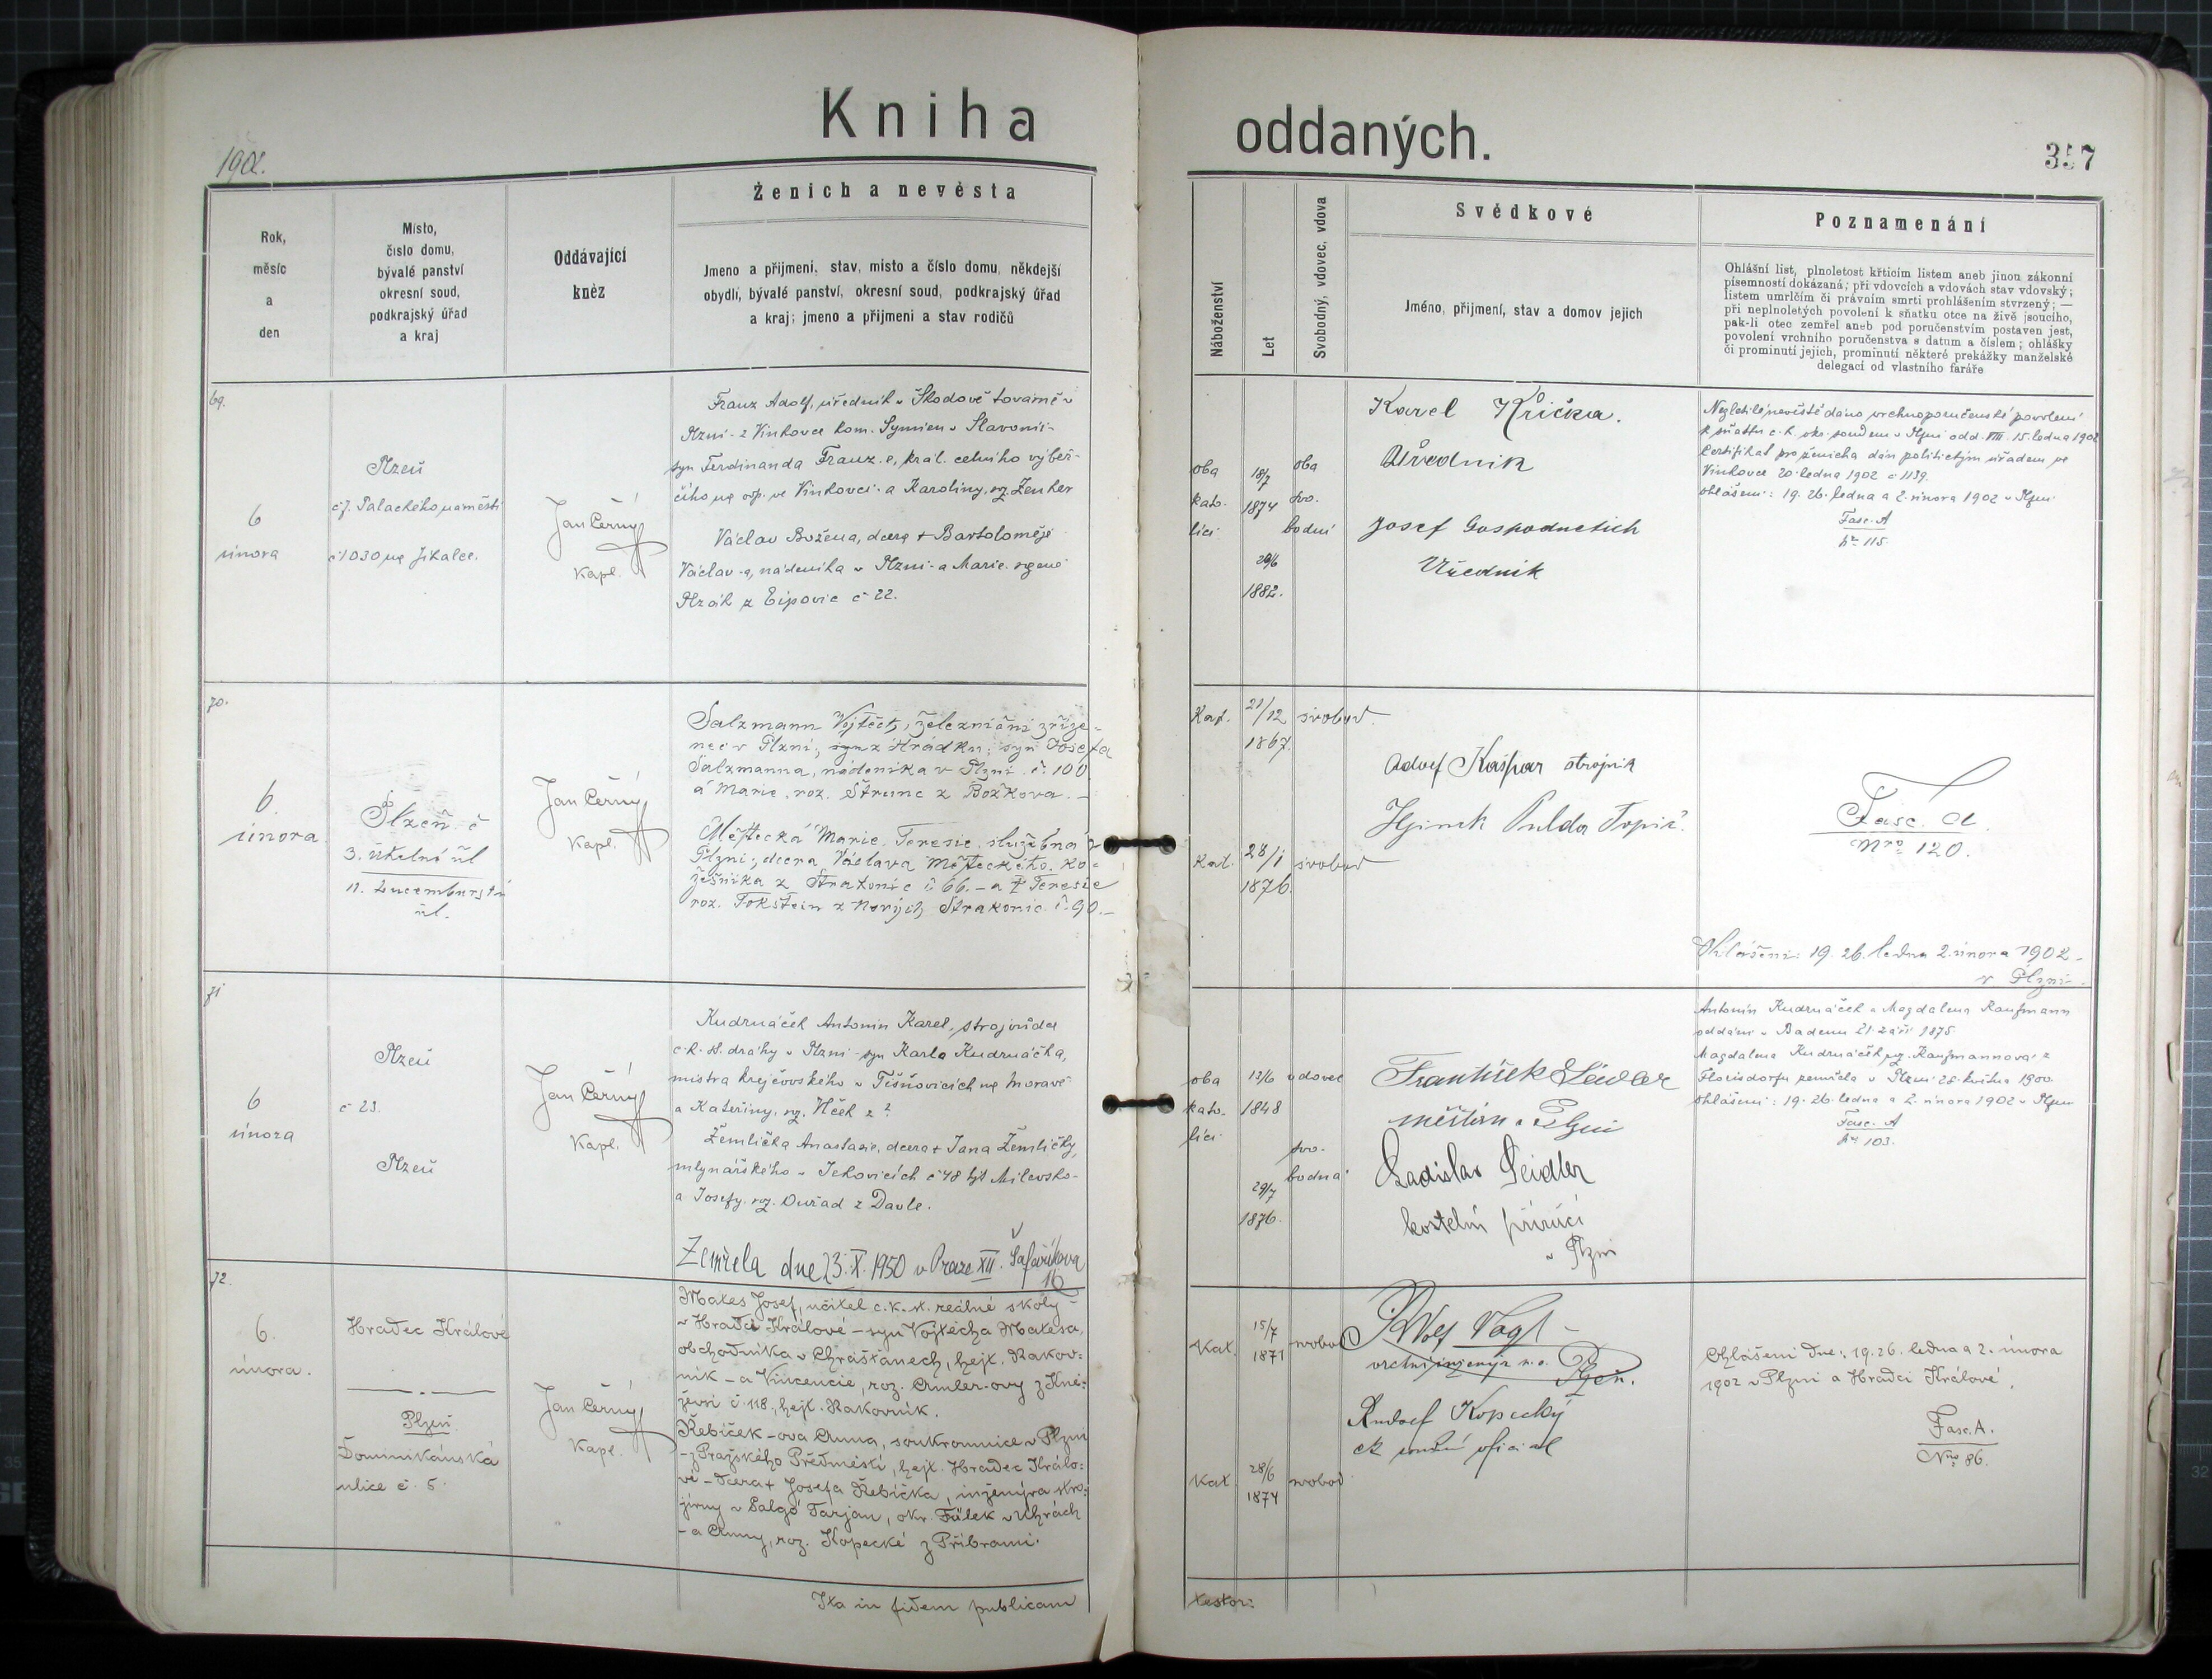 Kniha
oddaných.
1902.
357
Ženich a nevěsta
Rok,
měsíc
a
den
Místo,
číslo domu,
bývalé panství
okresní soud,
podkrajský úřad
a kraj
Oddávající
kněz
Jmeno a přijmeni, stav, misto a číslo domu, někdejší
obydlí, bývalé panství, okresní soud, podkrajský úřad
a kraj; jmeno a přijmeni a stav rodičů
Náboženství
Let
Svobodný, vdovec, vdova
Svědkové
Jméno, přijmení, stav a domov jejich
Poznamenání
Ohlášní list, plnoletost křticím listem aneb jinou zákonní
písemností dokázaná; při vdovcích a vdovách stav vdovský;
listem umrlčím či právním smrti prohlášením stvrzený; —
při neplnoletých povolení k sňatku otce na živě jsoucího,
pak-li otec zemřel aneb pod poručenstvím postaven jest,
povolení vrchního poručenstva s datum a číslem; ohlášky
či prominutí jejich, prominutí některé prekážky manželské
delegací od vlastního faráře
69.
6
února
Plzeň
čj. Palackého náměstí
č 1030 na Jíkalce.
Jan Černý
Kapl.
Franz Adolf, úředník v Škodově továrně v
Plzni - z Vinkovce kom. Symien v Slavonii -
syn Ferdinanda Franz-e, král. celního výběr-
čího na odp. ve Vinkovci - a Karoliny, roz. Zenker
Václav Božena, dcera + Bartoloměje
Václav-a, nádeníka v Plzni - a Marie rozené
Plzák z Ejpovic č 22.
oba
kato-
líci
18/7
1874
29/6
1882.
oba
svo-
bodni
Karel Křička.
Úředník
Josef Gospodnetich
Úředník
Nezletilé nevěstě dáno vrchnoporučenské povolení
k sňatku c. k. okr. soudem v Plzni odd. VIII. 15. ledna 1902
Certifikat pro ženicha dán politickým úřadem ve
Vinkovce 20 ledna 1902 č 1139.
ohlášeni: 19. 26. ledna a 2. února 1902 v Plzni
Fasc. A
No 115.
70.
6.
února.
Plzeň č
3. Úhelná úl
11. Lucemburská
úl.
Jan Černý
Kapl.
Salzmann Vojtěch, železniční zříze-
nec v Plzni, syn z Hrádku; syn Josefa
Salzmanna, nádeníka v Plzni č. 100
a Marie, roz. Štrunc z Božkova. —
Měštecká Marie Teresie, služebná v
Plzni, dcera Václava Měšteckého, ko-
žešníka z Strakonic č 66. - a + Teresie
roz. Fokštein z Nových Strakonic č. 90. —
Kat.
21/12
1867.
svobod.
Kat.
28/1
1876.
svobod
Adolf Kašpar strojník
Hjinek Pulda Topič.
Fasc. A.
Nro 120.
Ohlášeni: 19. 26. ledna 2. února 1902 -
v Plzni.
71
6
února
Plzeň
č 23.
Plzeň
Jan Černý
Kapl.
Kudrnáček Antonin Karel, strojvůdce
c. k. st. dráhy v Plzni - syn Karla Kudrnáčka,
mistra krejčovského v Tišňovicích na Moravě
a Kateřiny, roz. Vlček z ?
Žemlička Anastasie, dcera + Jana Žemličky,
mlynářského v Jehovicích č 48 hjt Milevsko -
a Josefy roz. Duřad z Davle.
Zemřela dne 23. X. 1950 v Praze XII. Šafaříkova
16
oba
kato-
líci
13/6
1848
29/7
1876.
vdovec
svo-
bodná
František Seidler
měšťan v Plzni
Ladislav Seidler
kostelní příručí
v Plzni
Antonin Kudrnáček a Magdalena Kaufmann
oddáni v Badenu 21. září 1875.
Magdalena Kudrnáček roz. Kaufmannová z
Florisdorfu zemřela v Plzni 28 května 1900
ohlášeni: 19. 26. ledna a 2. února 1902 v Plzni
Fasc. A
No 103.
72.
6.
února.
Hradec Králové
Plzeň
Dominikánská
ulice č. 5.
Jan Černý
Kapl.
Mates Josef, učitel c. k. st. reálné školy -
v Hradci Králové - syn Vojtěcha Matesa,
obchodníka v Chrášťanech, hejt. Rakov-
ník - a Vincencie, roz. Amler-ovy z Kně-
ževsi č. 118., hejt. Rakovník.
Řebíček-ova Anna, soukromnice v Plzni
- z Pražského Předměstí, hejt. Hradec Králo-
vé - dcera + Josefa Řebíčka, inženýra stro-
jírny v Salgó Tarján, okr. Fülek v Uhrách
- a Anny, roz. Kopecké z Příbrami.
Kat.
15/7
1871
svobod
Kat.
28/6
1874
svobod
Adolf Vogl
vrchní inženýr v. v. Plzeň.
Rudolf Kopecký
ck soudní oficial
Ohlášeni dne: 19. 26. ledna a 2. února
1902 v Plzni a Hradci Králové.
Fasc. A.
Nro 86.
Ita in fidem publicam
testor: